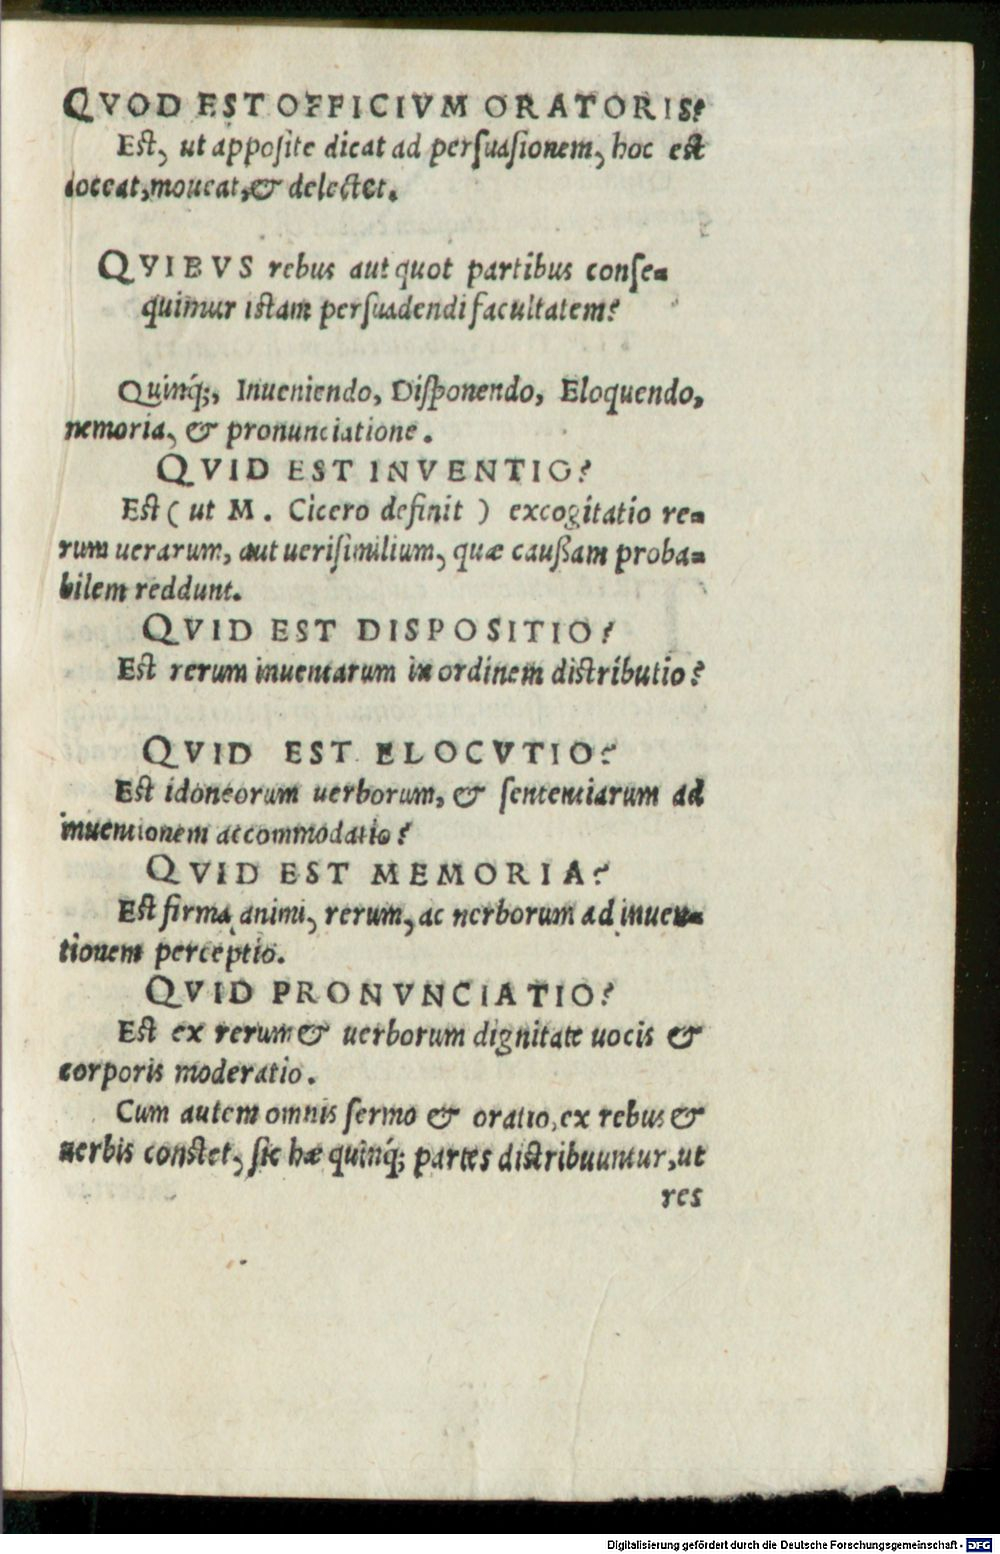 QVOD EST OFFICIVM ORATORIS?
Est, ut apposite dicat ad persuasionem, hoc est
doceat, moueat, & delectet.
QVIBVS rebus aut quot partibus conse=
quimur istam persuadendi facultatem?
Quinq́;, Inueniendo, Disponendo, Eloquendo,
memoria, & pronunciatione.
QVID EST INVENTIO?
Est ( ut M. Cicero definit ) excogitatio re=
rum uerarum, aut uerisimilium, quæ caußam proba=
bilem reddunt.
QVID EST DISPOSITIO?
Est rerum inuentarum in ordinem distributio?
QVID EST ELOCVTIO?
Est idoneorum uerborum, & sententiarum ad
inuentionem accommodatio?
QVID EST MEMORIA?
Est firma animi, rerum, ac uerborum ad inuen=
tionem perceptio.
QVID PRONVNCIATIO?
Est ex rerum & uerborum dignitate uocis &
corporis moderatio.
Cum autem omnis sermo & oratio, ex rebus &
uerbis constet, sic hæ quinq́; partes distribuuntur, ut
res
Digitalisierung gefördert durch die Deutsche Forschungsgemeinschaft - DFG